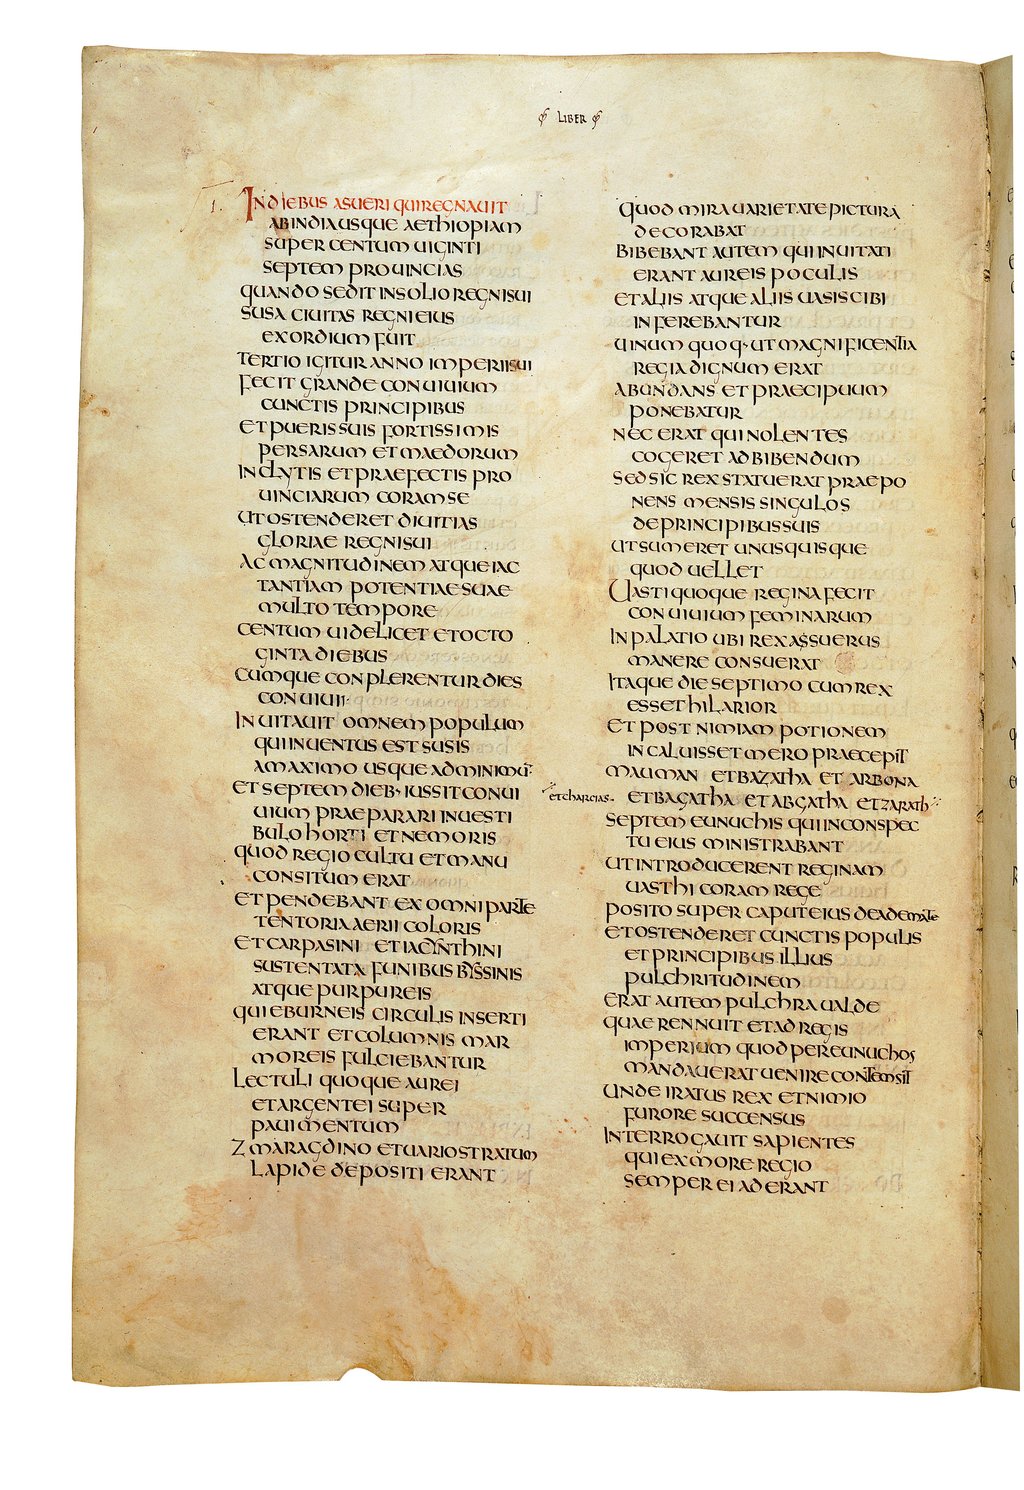 LIBER
I.
IN DIEBUS ASUERI QUI REGNAUIT
AB INDIA USQUE AETHIOPIAM
SUPER CENTUM UIGINTI
SEPTEM PROUINCIAS
QUANDO SEDIT IN SOLIO REGNI SUI
SUSA CIUITAS REGNI EIUS
EXORDIUM FUIT
TERTIO IGITUR ANNO IMPERII SUI
FECIT GRANDE CONUIUIUM
CUNCTIS PRINCIPIBUS
ET PUERIS SUIS FORTISSIMIS
PERSARUM ET MAEDORUM
INCLYTIS ET PRAEFECTIS PRO
UINCIARUM CORAM SE
UT OSTENDERET DIUITIAS
GLORIAE REGNI SUI
AC MAGNITUDINEM ATQUE IAC
TANTIAM POTENTIAE SUAE
MULTO TEMPORE
CENTUM UIDELICET ET OCTO
GINTA DIEBUS
CUMQUE CONPLERENTUR DIES
CONUIUII
INUITAUIT OMNEM POPULUM
QUI INUENTUS EST SUSIS
A MAXIMO USQUE AD MINIMŪ
ET SEPTEM DIEB· IUSSIT CONUI
UIUM PRAEPARARI IN UESTI
BULO HORTI ET NEMORIS
QUOD REGIO CULTU ET MANU
CONSITUM ERAT
ET PENDEBANT EX OMNI PARTE
TENTORIA AERII COLORIS
ET CARPASINI ET IACYNTHINI
SUSTENTATA FUNIBUS BYSSINIS
ATQUE PURPUREIS
QUI EBURNEIS CIRCULIS INSERTI
ERANT ET COLUMNIS MAR
MOREIS FULCIEBANTUR
LECTULI QUOQUE AUREI
ET ARGENTEI SUPER
PAUIMENTUM
ZMARAGDINO ET UARIO STRATUM
LAPIDE DEPOSITI ERANT
QUOD MIRA UARIETATE PICTURA
DECORABAT
BIBEBANT AUTEM QUI INUITATI
ERANT AUREIS POCULIS
ET ALIIS ATQUE ALIIS UASIS CIBI
INFEREBANTUR
UINUM QUOQ· UT MAGNIFICENTIA
REGIA DIGNUM ERAT
ABUNDANS ET PRAECIPUUM
PONEBATUR
NEC ERAT QUI NOLENTES
COGERET AD BIBENDUM
SED SIC REX STATUERAT PRAEPO
NENS MENSIS SINGULOS
DE PRINCIPIBUS SUIS
UT SUMERET UNUSQUISQUE
QUOD UELLET
UASTI QUOQUE REGINA FECIT
CONUIUIUM FEMINARUM
IN PALATIO UBI REX ASSUERUS
MANERE CONSUERAT
ITAQUE DIE SEPTIMO CUM REX
ESSET HILARIOR
ET POST NIMIAM POTIONEM
INCALUISSET MERO PRAECEPIT
MAUMAN ET BAZATHA ET ARBONA
et charcias· ET BAGATHA ET ABGATHA ET ZARATH
SEPTEM EUNUCHIS QUI IN CONSPEC
TU EIUS MINISTRABANT
UT INTRODUCERENT REGINAM
UASTHI CORAM REGE
POSITO SUPER CAPUT EIUS DEADEMATE
ET OSTENDERET CUNCTIS POPULIS
ET PRINCIPIBUS ILLIUS
PULCHRITUDINEM
ERAT AUTEM PULCHRA UALDE
QUAE RENNUIT ET AD REGIS
IMPERIUM QUOD PER EUNUCHOS
MANDAUERAT UENIRE CONTEMSIT
UNDE IRATUS REX ET NIMIO
FURORE SUCCENSUS
INTERROGAUIT SAPIENTES
QUI EX MORE REGIO
SEMPER EI ADERANT